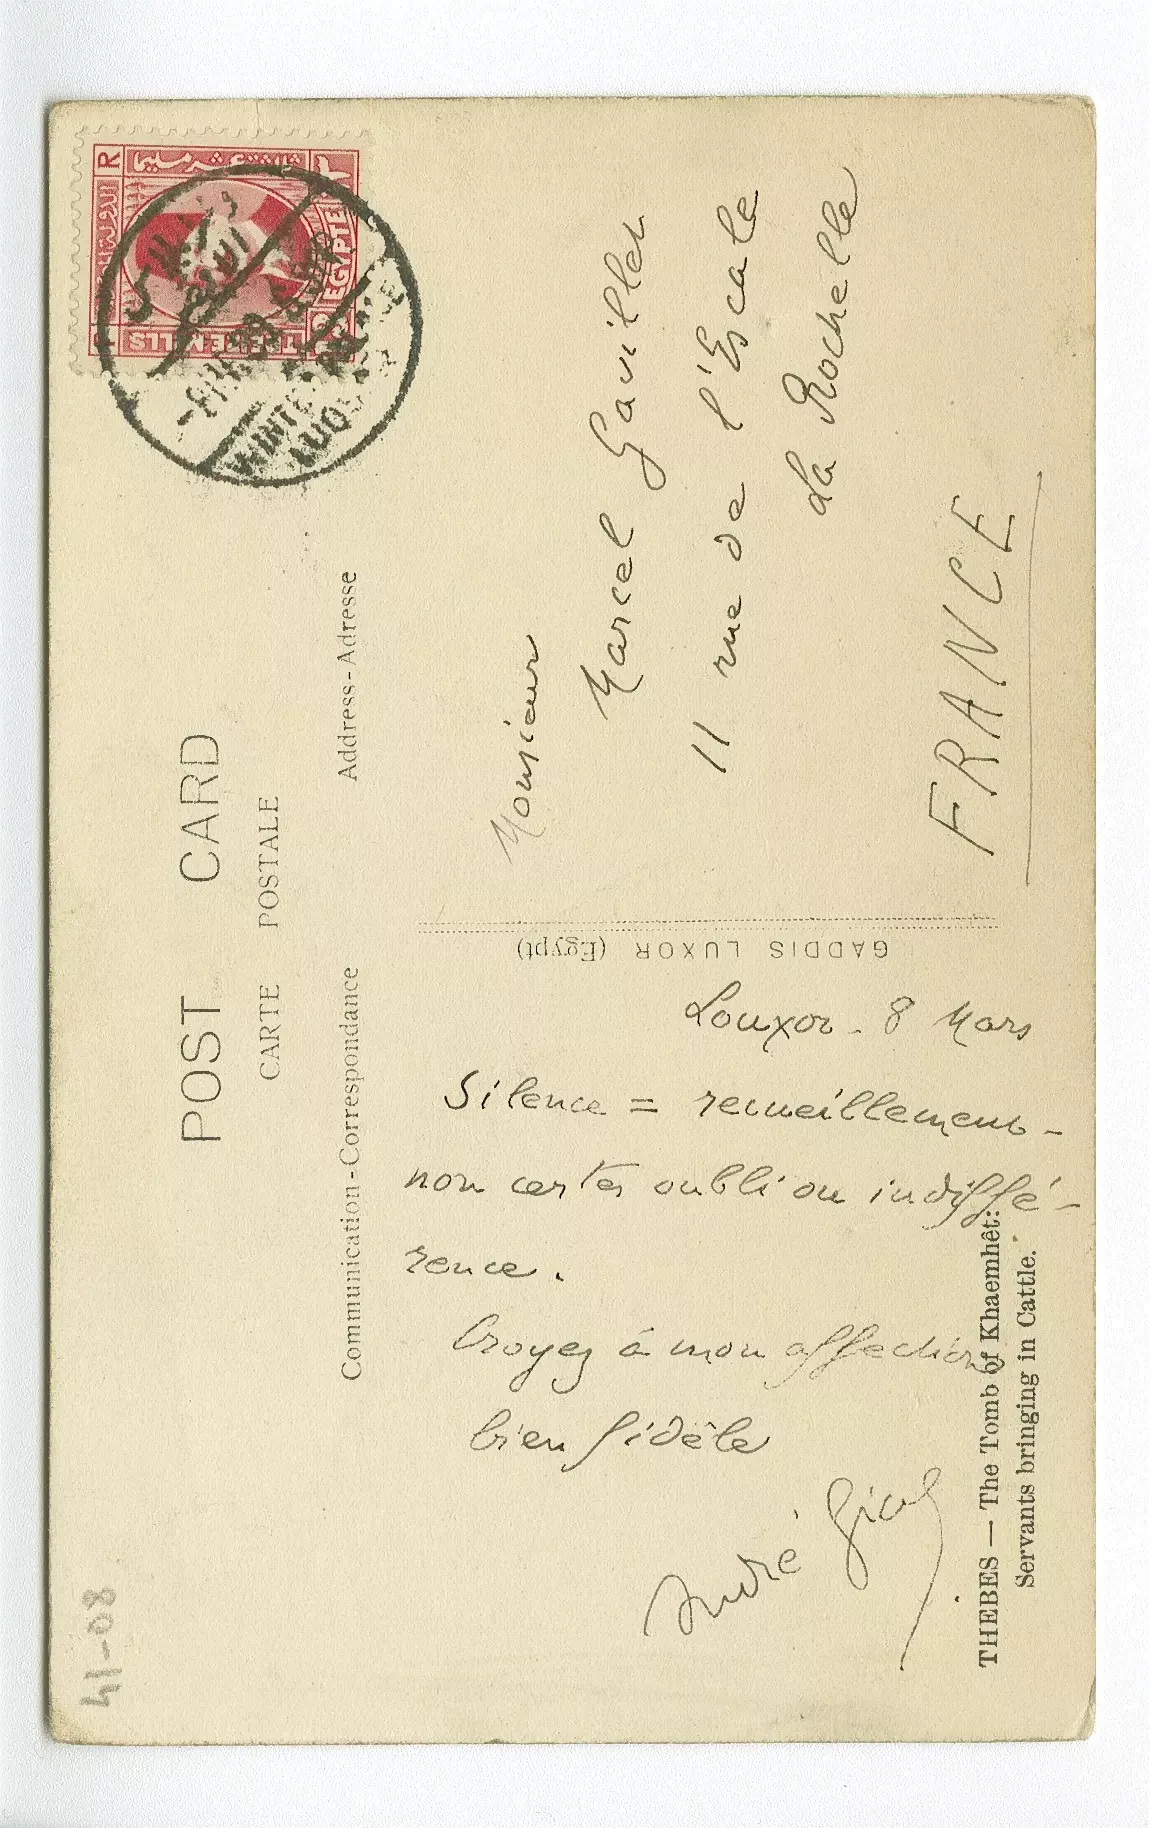 POST CARD
CARTE POSTALE
Communication-Correspondance
Address-Adresse
EGYPTE
THREE MILLS
WINTER PALACE
Louxor - 8 Mars
Silence = recueillement -
non certes oubli ou indiffé-
rence.
Croyez à mon affection
bien fidèle
André Gide
GADDIS LUXOR (Egypt)
Monsieur
Marcel Gavillet
11 rue de l'Escale
La Rochelle
FRANCE
THEBES — The Tomb of Khaemhêt:
Servants bringing in Cattle.
41-08